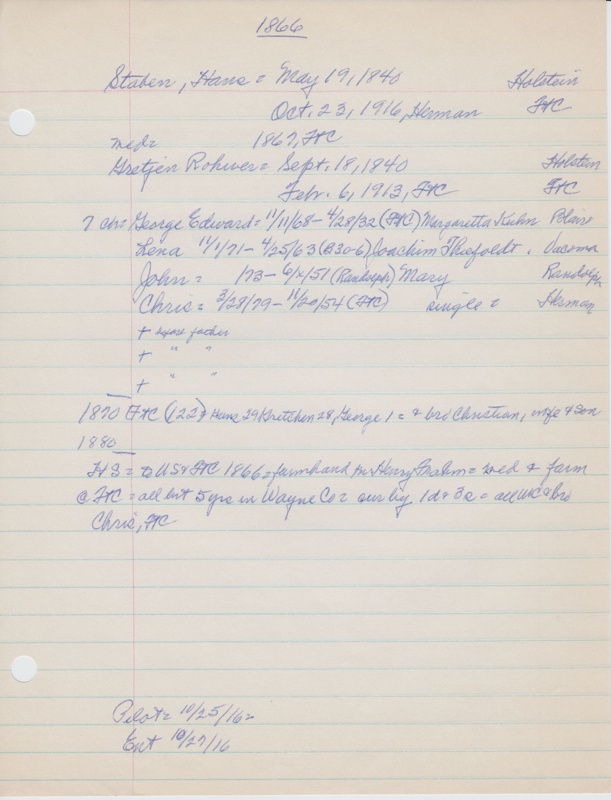 1866
Staben, Hans = May 19, 1840 Holstein
Oct. 23, 1916, Herman FtC
med = 1867, FtC
Gretjen Rohwer = Sept. 18, 1840 Holstein
Febr. 6, 1913, FtC FtC
7 ch = George Edward = 11/11/68 - 4/28/32 (FtC) Margaretta Kuhn Blair
Lena 11/1/71 - 4/25/63 (B30-6) Joachim Thiefoldt. Vacoma
John = /73 - 6/x/51 (Randolph) Mary Randolph
Chris = 3/28/79 - 11/20/54 (FtC) single = Herman
+ before father
+ " "
+ " "
1870 FtC (122) + Hans 29 Gretchen 28 George 1 = + bro Christian, wife + son
1880
HS = to US + FtC 1866 = farmhand for Henry Frahm = wed + farm
@ FtC = all but 5 yrs in Wayne Co = surv by 1 d + 3 s = all WC + bro
Chris, FtC
Pilot = 10/25/16 =
Ent 10/27/16